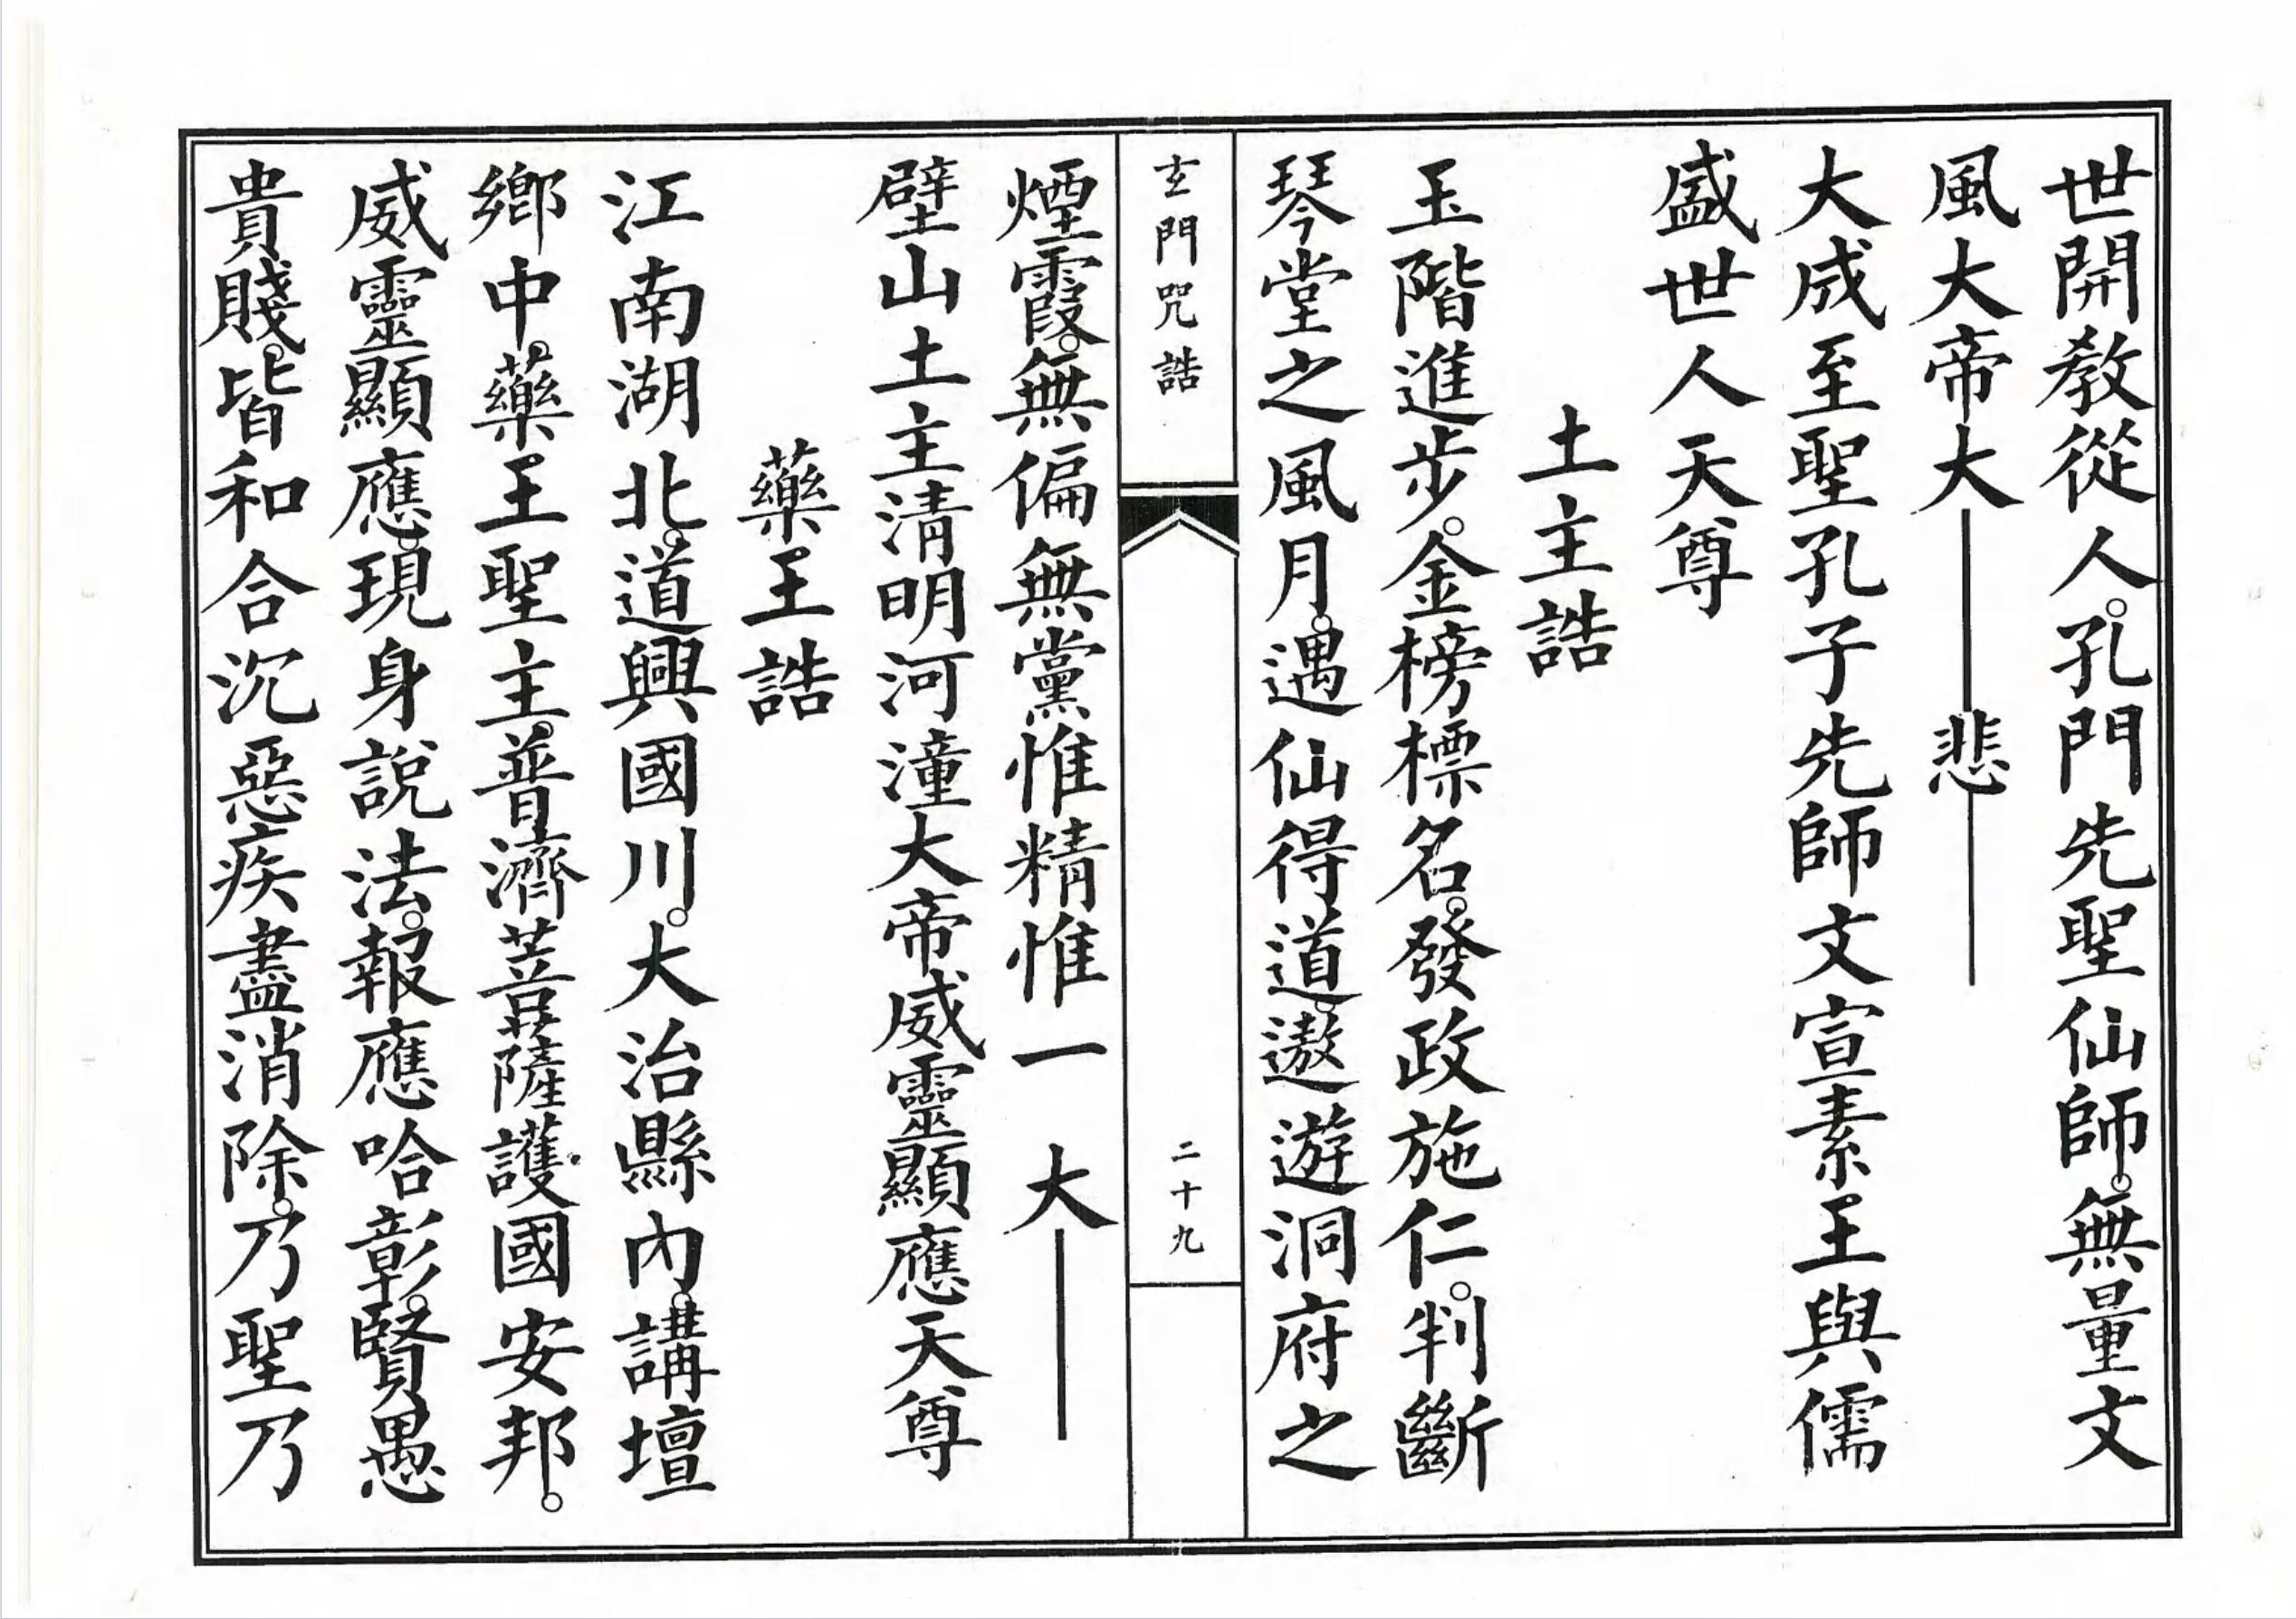 世開教從人。孔門先聖仙師。無量文
風大帝大——悲——
大成至聖孔子先師文宣素王與儒
盛世人天尊
土主誥
玉階進步。金榜標名。發政施仁。判斷
琴堂之風月。遇仙得道。遨遊洞府之
玄門咒誥
二十九
煙霞。無偏無黨惟精惟一 大——
壁山土主清明河潼大帝威靈顯應天尊
藥王誥
江南湖北。道興國川。大治縣內。講壇
鄉中。藥王聖主。普濟菩薩護國安邦。
威靈顯應。現身說法。報應哈彰。賢愚
貴賤。皆和合沉惡疾盡消除。乃聖乃